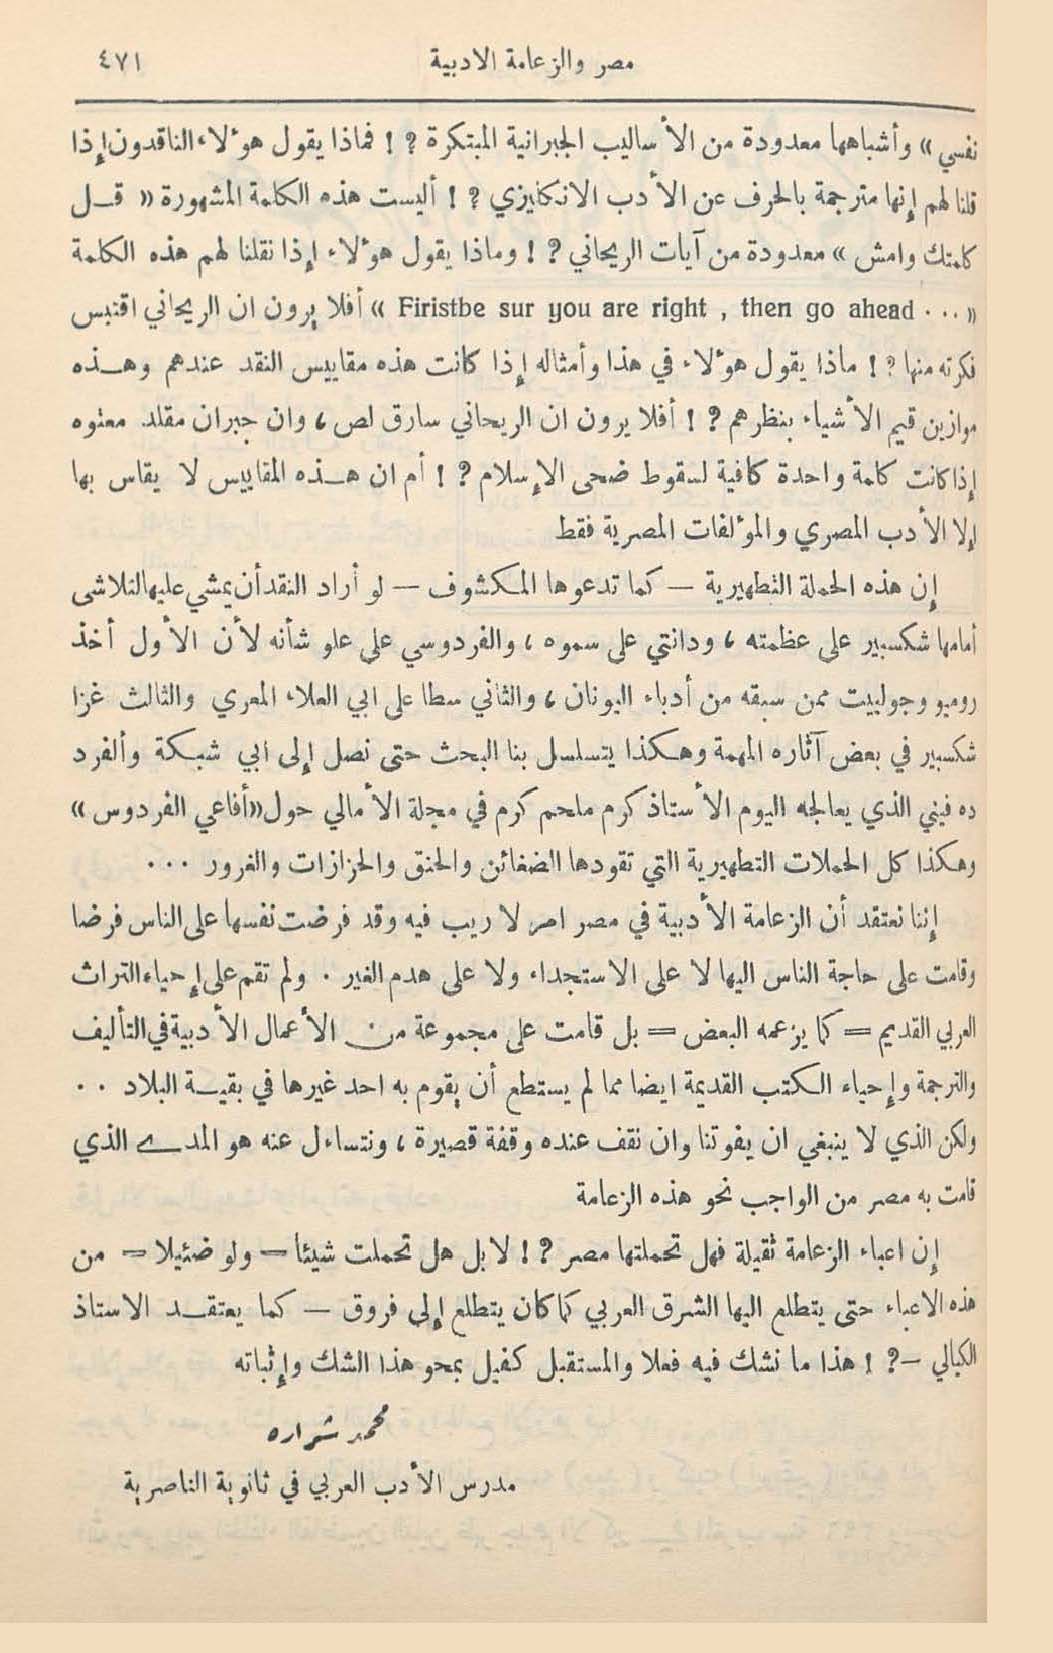 مصر والزعامة الادبية ٤٧١
نفسي » وأشباهها معدودة من الأساليب الجبرانية المبتكرة ؟ ! فماذا يقول هؤلاء الناقدون إذا
قلنا لهم إنها مترجمة بالحرف عن الأدب الانكليزي ؟ ! أليست هذه الكلمة المشهورة « قــل
كلمتك وامش » معدودة من آيات الريحاني ؟ ! وماذا يقول هؤلاء إذا نقلنا لهم هذه الكلمة
« ... Firistbe sur you are right , then go ahead » أفلا يرون ان الريحاني اقتبس
فكرته منها ؟ ! ماذا يقول هؤلاء في هذا وأمثاله إذا كانت هذه مقاييس النقد عندهم وهــذه
موازين قيم الأشياء بنظرهم ؟ ! أفلا يرون ان الريحاني سارق لص ، وان جبران مقلد معتوه
إذا كانت كلمة واحدة كافية لسقوط ضحى الإسلام ؟ ! أم ان هــذه المقاييس لا يقاس بها
إلا الأدب المصري والمؤلفات المصرية فقط
إن هذه الحملة التطهيرية – كما تدعوها المكشوف – لو أراد النقد أن يمشي عليها لتلاشى
أمامها شكسبير على عظمته ، ودانتي على سموه ، والفردوسي على علو شأنه لأن الأول أخذ
روميو وجولييت ممن سبقه من أدباء اليونان ، والثاني سطا على ابي العلاء المعري والثالث غزا
شكسبير في بعض آثاره المهمة وهكذا يتسلسل بنا البحث حتى نصل إلى ابي شبكة وألفرد
ده فيني الذي يعالجه اليوم الأستاذ كرم ملحم كرم في مجلة الأمالي حول «أفاعي الفردوس »
وهكذا كل الحملات التطهيرية التي تقودها الضغائن والحنق والحزازات والغرور ...
إننا نعتقد أن الزعامة الأدبية في مصر امر لا ريب فيه وقد فرضت نفسها على الناس فرضا
وقامت على حاجة الناس اليها لا على الاستجداء ولا على هدم الغير . ولم تقم على إحياء التراث
العربي القديم = كما يزعمه البعض = بل قامت على مجموعة من الأعمال الأدبية في التأليف
والترجمة وإحياء الكتب القديمة ايضا مما لم يستطع أن يقوم به احد غيرها في بقيــة البلاد . .
ولكن الذي لا ينبغي ان يفوتنا وان نقف عنده وقفة قصيرة ، ونتساءل عنه هو المدى الذي
قامت به مصر من الواجب نحو هذه الزعامة
إن اعباء الزعامة ثقيلة فهل تحملتها مصر ؟ ! لا بل هل تحملت شيئا – ولو ضئيلا – من
هذه الاعباء حتى يتطلع اليها الشرق العربي كما كان يتطلع إلى فروق – كما يعتقــد الاستاذ
الكيالي –؟ ! هذا ما نشك فيه فعلا والمستقبل كفيل بمحو هذا الشك وإثباته
محمد شراره
مدرس الأدب العربي في ثانوية الناصرية